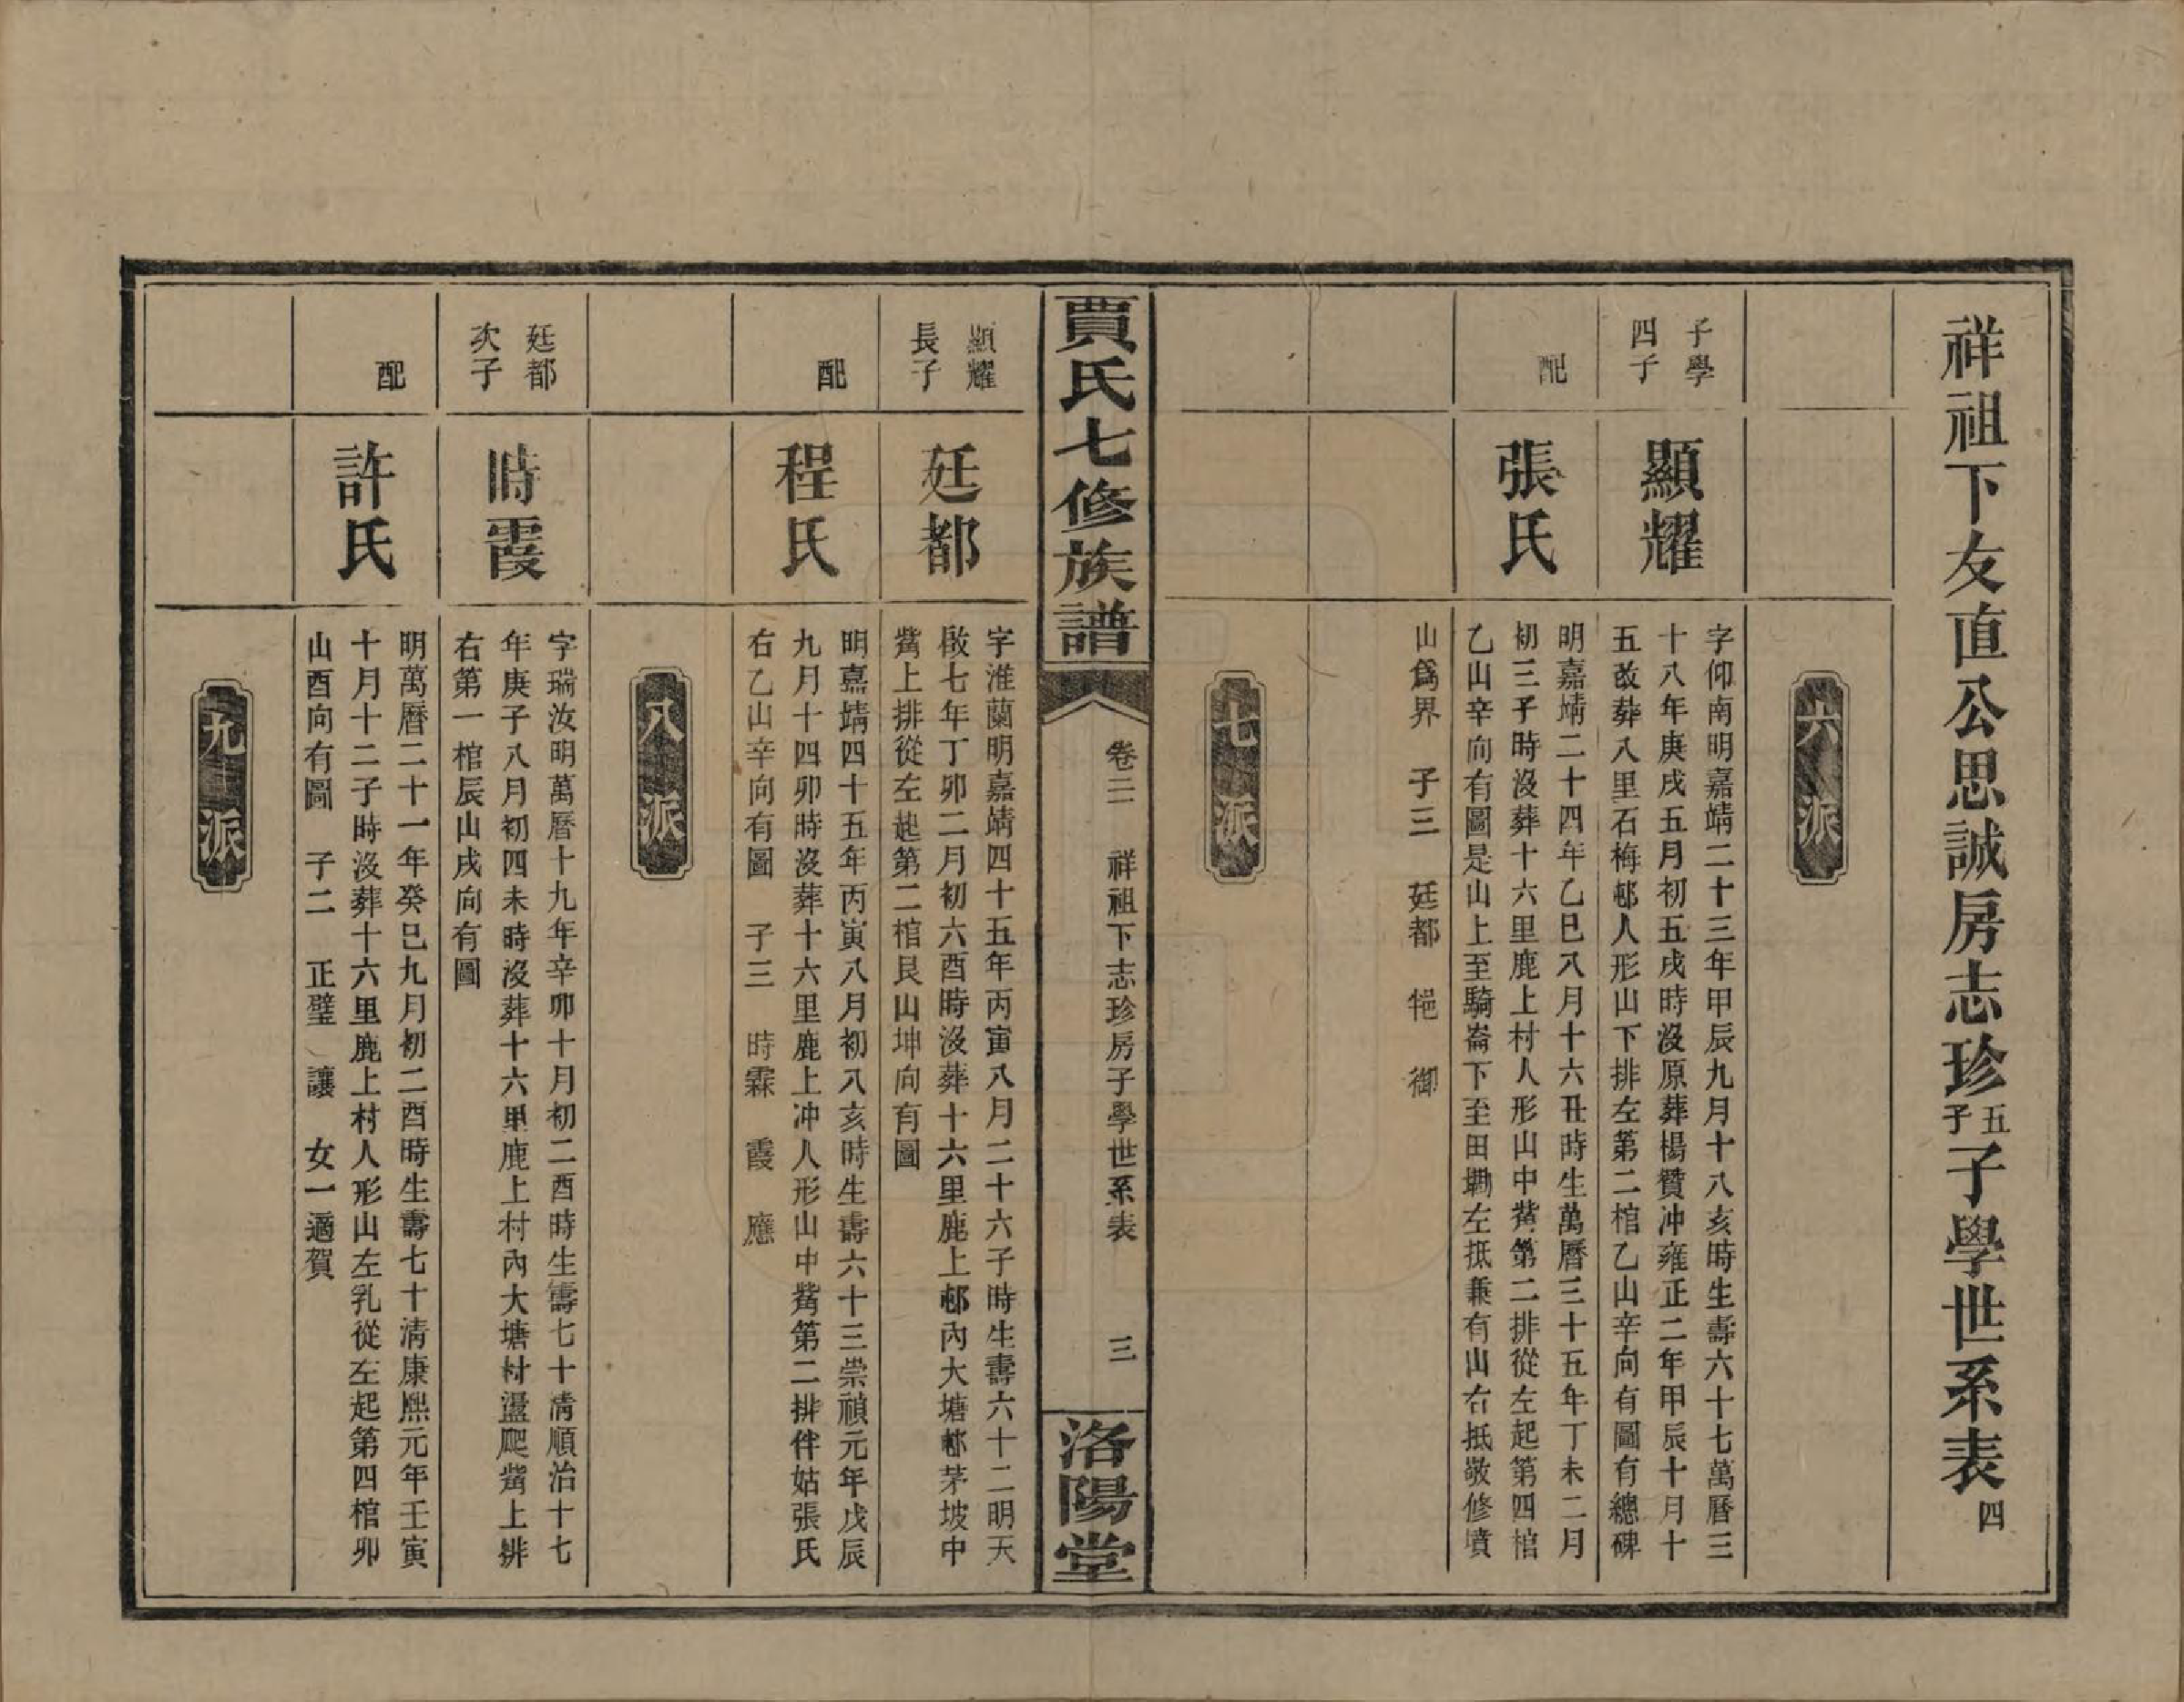 祥祖下友直公思誠房志珍五子子學世系表四
六派
子學
四子
顯耀
字仰南明嘉靖二十三年甲辰九月十八亥時生壽六十七萬曆三
十八年庚戌五月初五戌時沒原葬楊贊冲雍正二年甲辰十月十
五改葬八里石梅邨人形山下排左第二棺乙山辛向有圖有總碑
配
張氏
明嘉靖二十四年乙巳八月十六丑時生萬曆三十五年丁未二月
初三子時沒葬十六里鹿上村人形山中觜第二排從左起第四棺
乙山辛向有圖是山上至騎崙下至田墈左抵兼有山右抵敬修墳
山爲界 子三 廷都 㹭 御
七派
賈氏七修族譜
卷二
祥祖下志珍房子學世系表
三
洛陽堂
顯耀
長子
廷都
字淮蘭明嘉靖四十五年丙寅八月二十六子時生壽六十二明天
啟七年丁卯二月初六酉時沒葬十六里鹿上邨內大塘邨茅坡中
觜上排從左起第二棺艮山坤向有圖
配
程氏
明嘉靖四十五年丙寅八月初八亥時生壽六十三崇禎元年戊辰
九月十四卯時沒葬十六里鹿上冲人形山中觜第二排伴姑張氏
右乙山辛向有圖 子三 時霖 霞 應
八派
廷都
次子
時霞
字瑞汝明萬曆十九年辛卯十月初二酉時生壽七十清順治十七
年庚子八月初四未時沒葬十六里鹿上村內大塘村盪爬觜上排
右第一棺辰山戌向有圖
配
許氏
明萬曆二十一年癸巳九月初二酉時生壽七十清康熙元年壬寅
十月十二子時沒葬十六里鹿上村人形山左乳從左起第四棺卯
山酉向有圖 子二 正璧 讓 女一適賀
九派